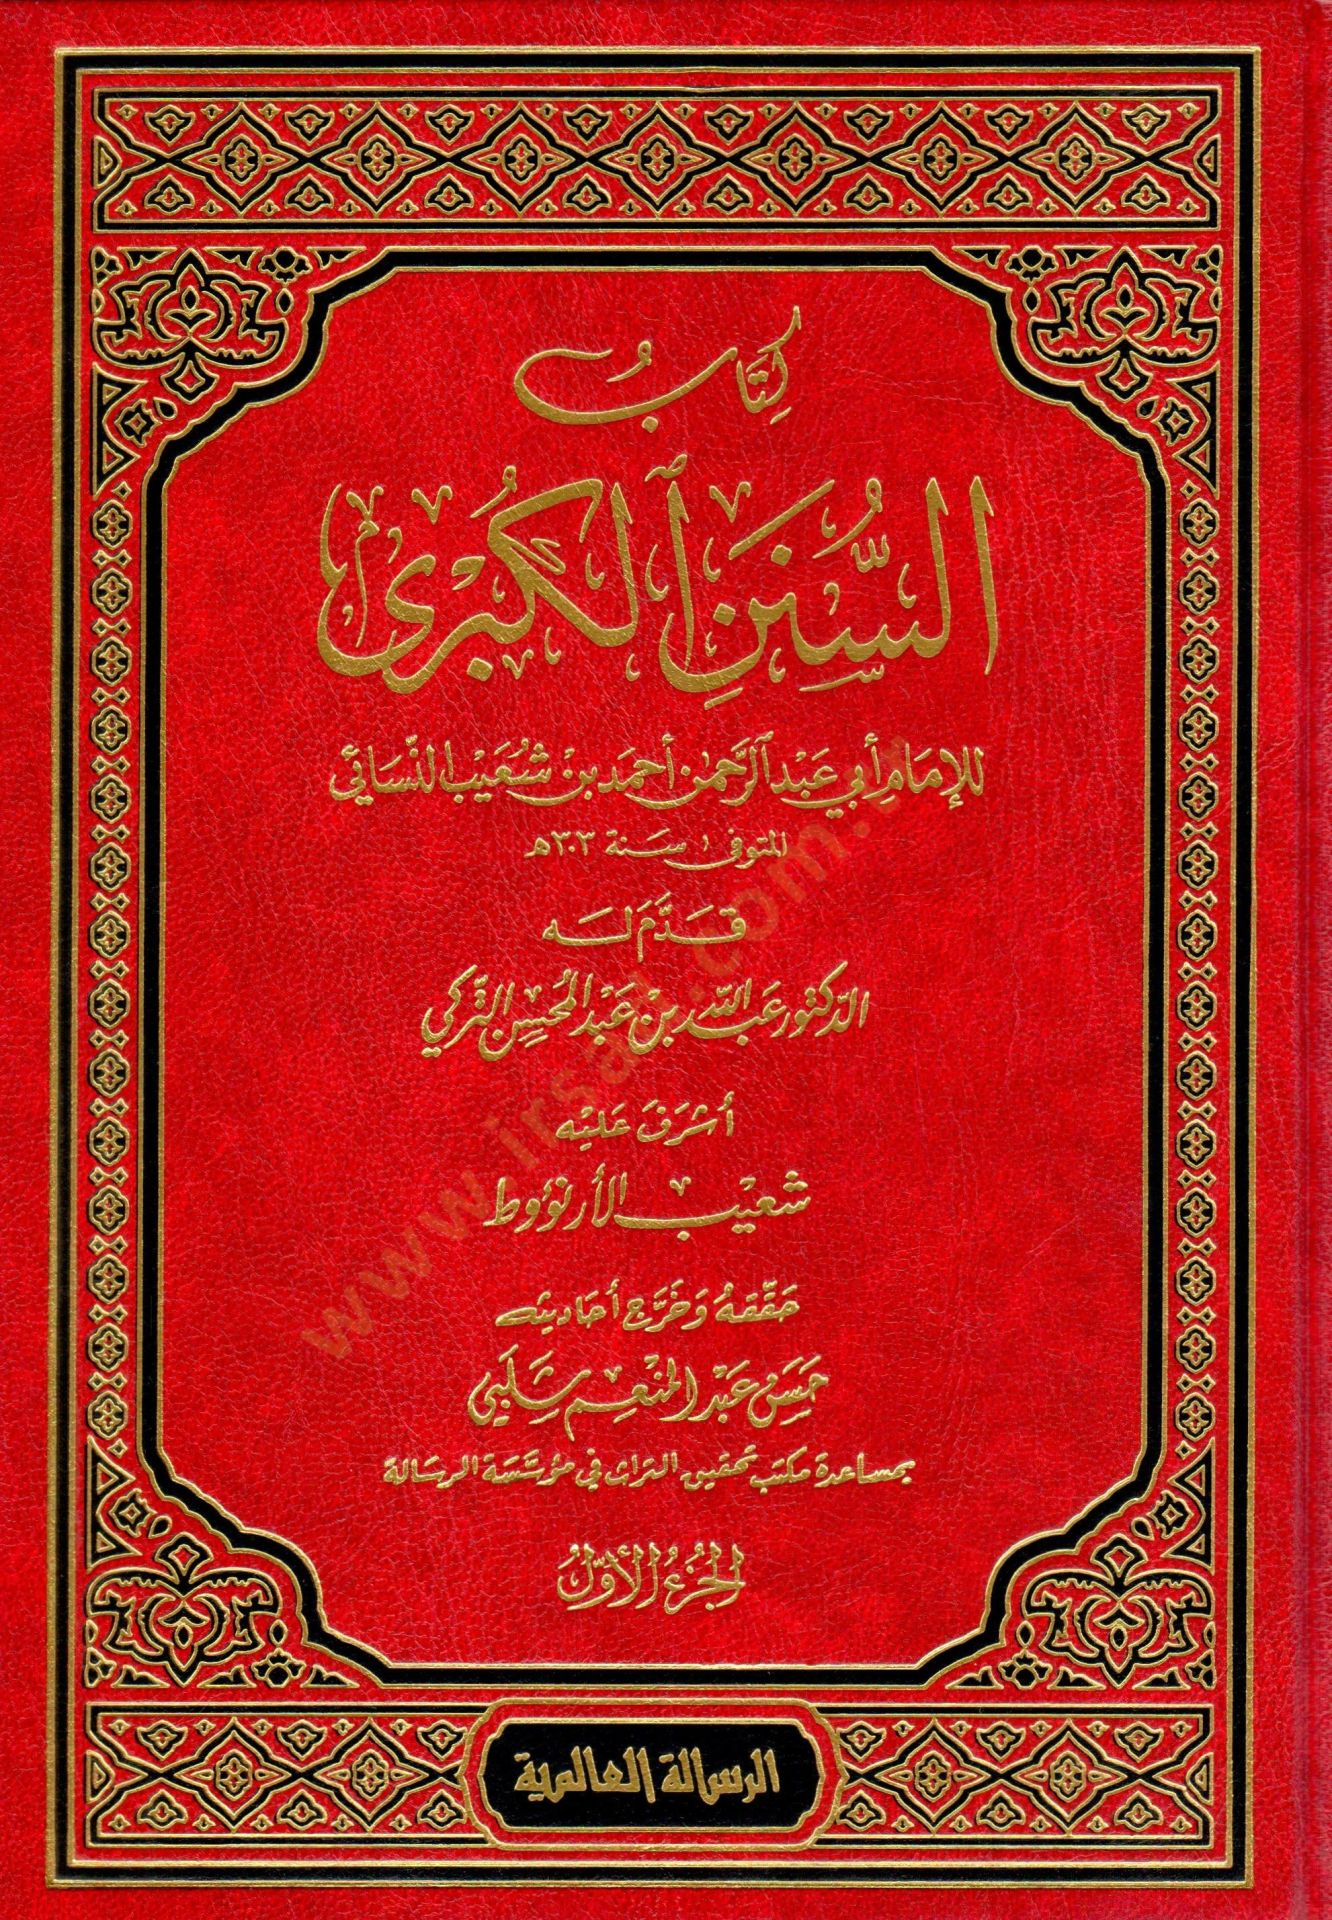 كِتَابُ
السُّنَنِ ٱلكُبْرى
للإمَامِ أبي عَبْد ٱلرَّحمٰن أحمَد بن شُعَيب النّسَائي
المتوفى سَنة ٣٠٣هـ
قَدَّمَ لَه
الدكتور عَبد اللّٰه بن عَبد المُحسِن التّركي
أشرَفَ عَليْه
شعَيْب الأرنؤوط
حَقّقهُ وَخَرَّج أحَاديثه
حَسَن عَبْد المنْعِم شَلَبي
بمسَاعدة مكتب تحقيق التراث في مؤسّسَة الرسَالة
الجُزءُ الأوّلُ
الرسالة العالمية
www.irsad.com.tr